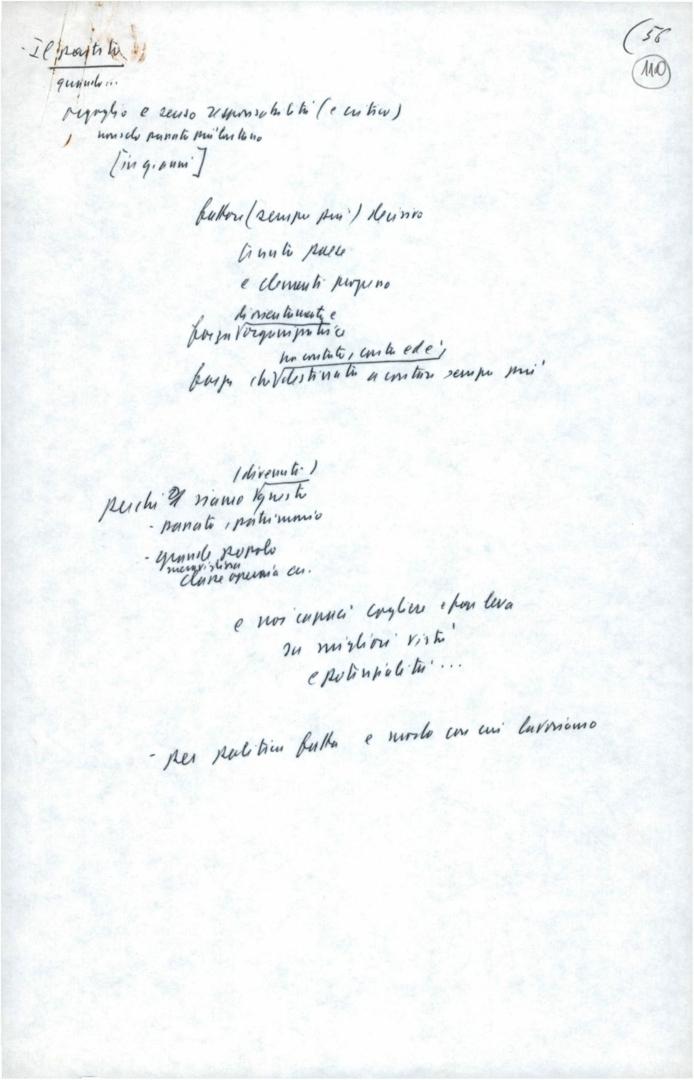 (56
110
- Il partito
quando...
orgoglio e senso responsabilità (e critico)
non solo passato più lontano
[in q. anni]
fattore (sempre più) decisivo
tenuta paese
e elementi progresso
di orientamento e
forza organizzatrice
ha contato, conta ed è,
forza che destinata a contare sempre più
(divenuti)
perché siamo questo
- passato, patrimonio
- grande popolo
meravigliosa
classe operaia ecc.
e noi capaci cogliere e far leva
su migliori virtù
e potenzialità...
- per politica fatta e modo con cui lavoriamo